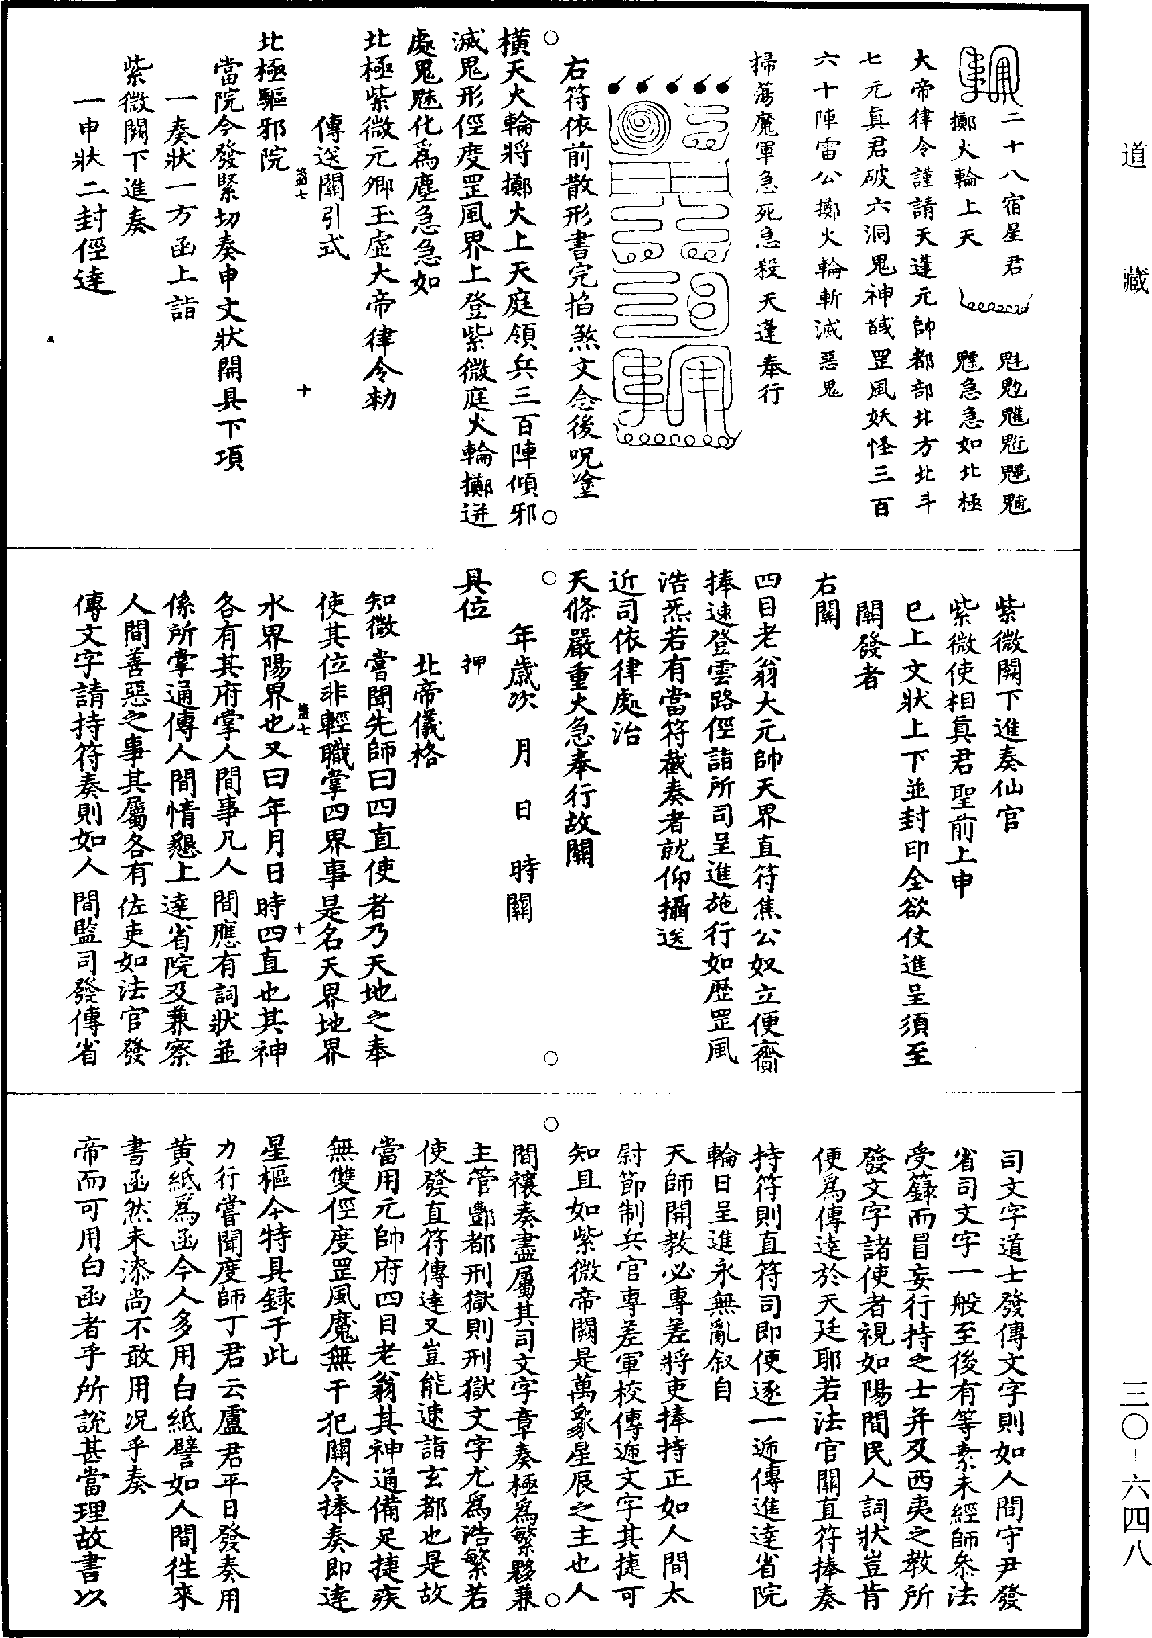 道藏
三〇-六四八
二十八宿星君
擲火輪上天
急急如北極
大帝律令謹請天蓬元帥都部北方北斗
七元真君破六洞鬼神馘罡風妖怪三百
六十陣雷公擲火輪斬滅惡鬼
掃蕩魔軍急死急殺天蓬奉行
右符依前散形書完掐煞文念後呪塗
橫天火輪將擲大上天庭領兵三百陣傾邪
滅鬼形徑度罡風界上登紫微庭火輪擲迸
處鬼魅化為塵急急如
北極紫微元卿玉虛大帝律令勑
傳送關引式
北極驅邪院
當院今發緊切奏申文狀開具下項
一奏狀一方函上詣
紫微闕下進奏
一申狀二封徑達
紫微闕下進奏仙官
紫微使相真君聖前上申
已上文狀上下並封印全欲仗進呈須至
關發者
右關
四目老翁大元帥天界直符焦公奴立便齎
捧速登雲路徑詣所司呈進施行如歷罡風
浩炁若有當符截奏者就仰攝送
近司依律處治
天條嚴重火急奉行故關
年歲次 月 日 時關
具位 押
北帝儀格
知微嘗聞先師曰四直使者乃天地之奉
使其位非輕職掌四界事是名天界地界
水界陽界也又曰年月日時四直也其神
各有其府掌人間事凡人間應有詞狀並
係所掌通傳人間情懇上達省院及兼察
人間善惡之事其屬各有佐吏如法官發
傳文字請持符奏則如人間監司發傳省
司文字道士發傳文字則如人間守尹發
省司文字一般至後有等素未經師參法
受籙而冒妄行持之士并及西夷之教所
發文字諸使者視如陽間民人詞狀豈肯
便為傳達於天廷耶若法官關直符捧奏
持符則直符司即便逐一遞傳進達省院
輪日呈進永無亂叙自
天師開教必專差將吏捧持正如人間太
尉節制兵官專差軍校傳遞文字其捷可
知且如紫微帝闕是萬象星辰之主也人
間禳奏盡屬其司文字章奏極為繁夥兼
主管酆都刑獄則刑獄文字尤為浩繁若
使發直符傳達又豈能速詣玄都也是故
當用元帥府四目老翁其神通備足捷疾
無雙徑度罡風魔無干犯關令捧奏即達
星樞今特具録于此
力行嘗聞度師丁君云盧君平日發奏用
黃紙為函今人多用白紙譬如人間徃來
書函然未添尚不敢用況乎奏
帝而可用白函者乎所說甚當理故書以